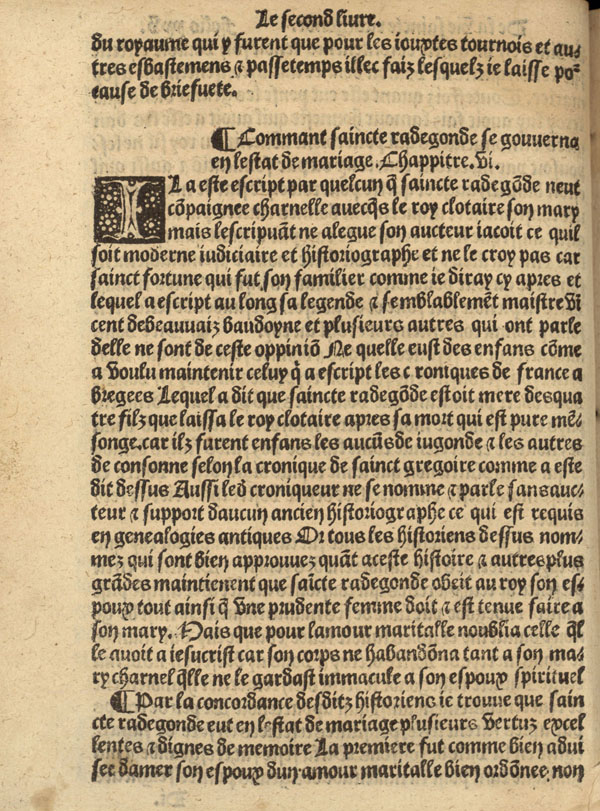 Le second liure.
du royaume qui y furent que pour les iouxtes tournois et au⸗
tres esbastemens ⁊ passetemps illec faiz lesquelz ie laisse po²
cause de briefuete.
¶ Commant saincte radegonde se gouuerna
en lestat de mariage. Chappitre. vi.
IL a este escript par quelcun q̄ saincte radegōde neut
cōpaignee charnelle auecq̄s le roy clotaire son mary
mais lescripuāt ne alegue son aucteur iacoit ce quil
soit moderne iudiciaire et historiographe et ne le croy pas car
sainct fortune qui fut son familier comme ie diray cy apres et
lequel a escript au long sa legende ⁊ semblablemēt maistre vi
cent debeauuaiz baudoyne et plusieurs autres qui ont parle
delle ne sont de ceste oppiniō Ne quelle eust des enfans cōme
a voulu maintenir celuy q̄ a escript les croniques de france a
bregees Lequel a dit que saincte radegōde estoit mere desqua
tre filz que laissa le roy clotaire apres sa mort qui est pure mē⸗
songe. car ilz furent enfans les aucūs de iugonde ⁊ les autres
de consonne selon la cronique de sainct gregoire comme a este
dit dessus Aussi led croniqueur ne se nomme ⁊ parle sans auc⸗
teur ⁊ support daucun ancien historiographe ce qui est requis
en genealogies antiques Or tous les historiens dessus nom⸗
mez qui sont bien approuuez quāt aceste histoire ⁊ autres plus
grādes maintienent que saīcte radegōde obeit au roy son es⸗
poux tout ainsi q̄ vne prudente femme doit ⁊ est tenue faire a
son mary. Mais que pour lamour maritalle noublia celle q̄l
le auoit a iesucrist car son corps ne habandōna tant a son ma⸗
ry charnel q̄lle ne le gardast immacule a son espoux spirituel
¶ Par la concordance desditz historiens ie trouue que sain
cte radegonde eut en lestat de mariage plusieurs vertuz excel
lentes ⁊ dignes de memoire La premiere fut comme bien adui
see damer son espoux dun amour maritalle bien ordōnee. non